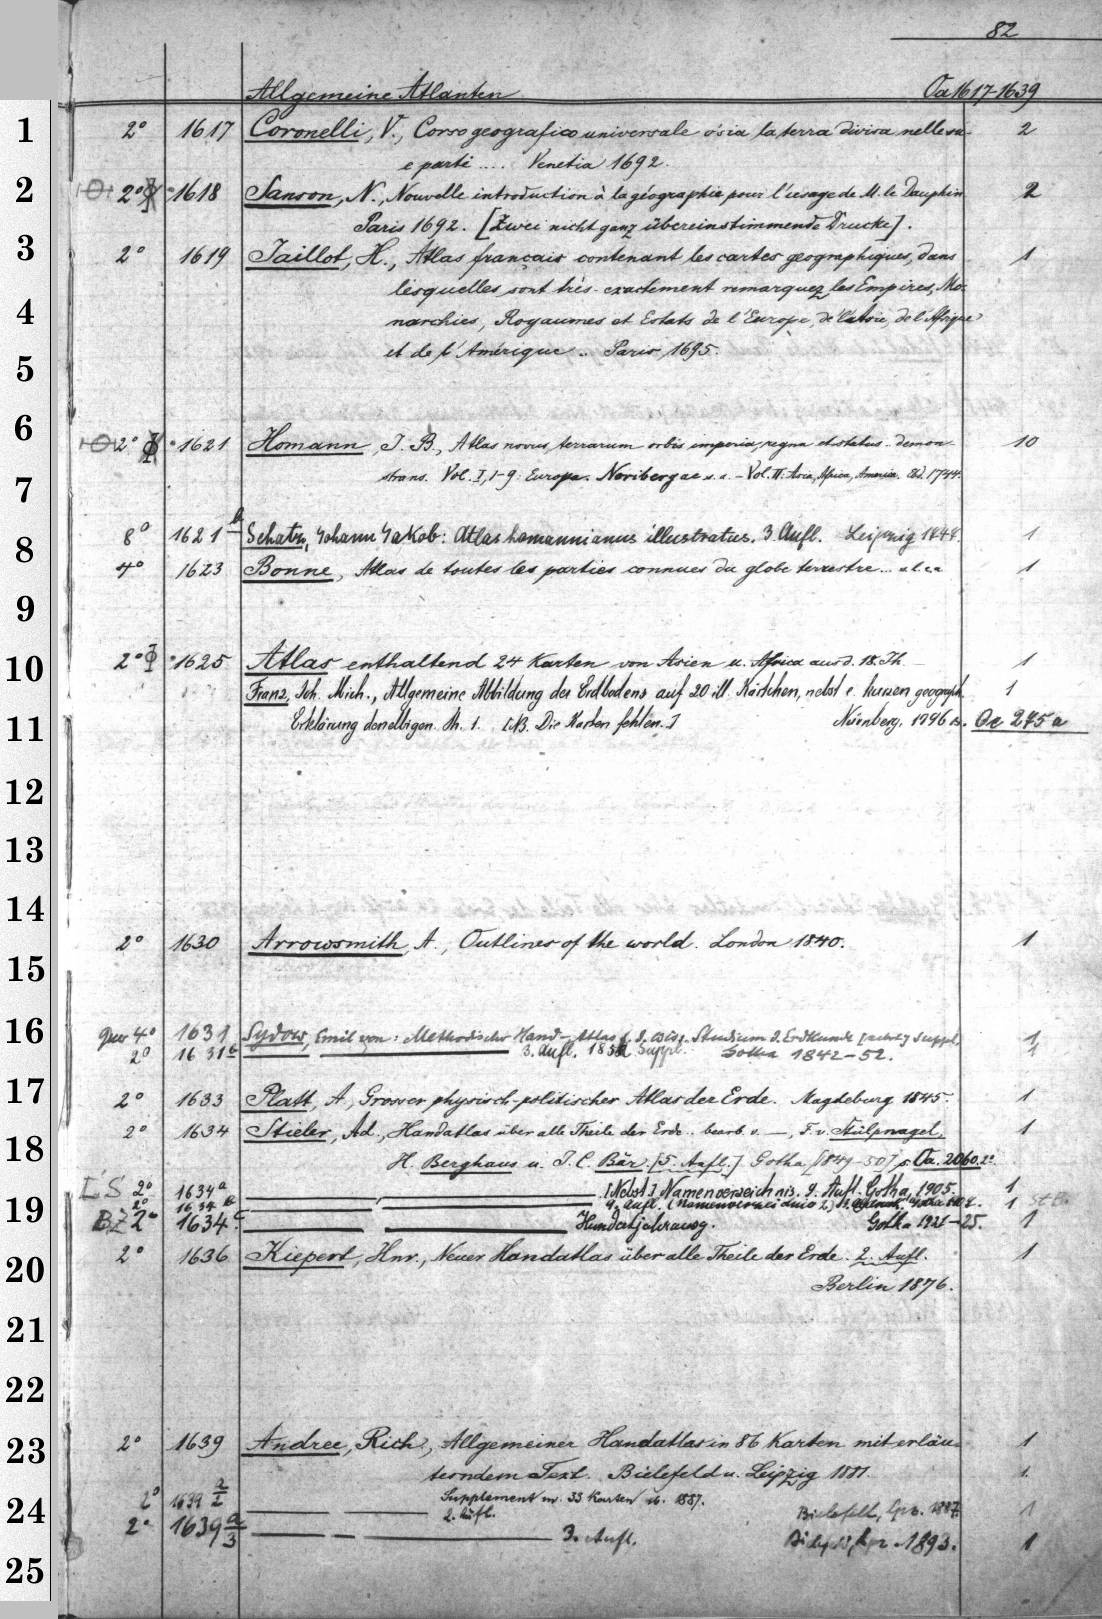 82
Allgemeine Atlanten Oa 1617-1639
1 2° 1617 Coronelli, V., Corso geografico universale ósia la terra divisa nelle su-
e parti .... Venetia 1692. 2
2 2° 1618 Sanson, N., Nouvelle introduction à la géographie pour l'usage de M. le Dauphin 2
Paris 1692. [Zwei nicht ganz übereinstimmende Drucke].
3 2° 1619 Jaillot, H., Atlas français contenant les cartes geographiques, dans 1
lesquelles sont très-exactement remarquez les Empires, Mo-
4 narchies, Royaumes et Estats de l'Europe, de l'Asie, de l'Afrique
et de l'Amérique .. Paris 1695.
5
6 2° 1621 Homann, J. B., Atlas novus terrarum orbis imperia, regna et status demon- 10
strans. Vol. I, 1-9: Europa. Noribergae s. a. - Vol. II. Asia, Africa, America. 1744.
7
8° 1621 a Schatz, Johann Jakob: Atlas homannianus illustratus. 3. Aufl. Leipzig 1
8 4° 1623 Bonne, Atlas de toutes les parties connues du globe terrestre... 1
9
10 2° 1625 Atlas enthaltend 24 Karten von Asien u. Africa aus d. 18. Jh. 1
Franz, Joh. Mich., Allgemeine Abbildung des Erdbodens auf 20 ill. Kärtchen, nebst e. kurzen geograph. 1
11 Erklärung derselbigen. Th. 1. [NB. Die Karten fehlen.] Nürnberg. Oa 275a
12
13
14
2° 1630 Arrowsmith, A., Outlines of the world. London 1840. 1
15
16 quer 4° 1631 Sydow, Emil von: Methodischer Hand-Atlas f. d. wiss. Studium d. Erdkunde Suppl. 1
2° 1631 b 3. Aufl. Suppl. Gotha 1842-52. 1
17 2° 1633 Platt, A., Grosser physisch-politischer Atlas der Erde. Magdeburg 1845. 1
2° 1634 Stieler, Ad., Handatlas über alle Theile der Erde .. bearb. v. —, F. v. Stülpnagel, 1
18 H. Berghaus u. J. C. Bär. [5. Aufl.] Gotha [1849-50] s. Oa. 2060. 2°
LS 2° 1634 a [Nebst] Namenverzeichnis. 9. Aufl. Gotha, 1905. 1
19 2° 1634 1
BZ 2° 1634 c Hundertjahrausg. Gotha 1921-25. 1
20 2° 1636 Kiepert, Hnr., Neuer Handatlas über alle Theile der Erde. 2. Aufl. 1
Berlin 1876.
21
22
23 2° 1639 Andree, Rich., Allgemeiner Handatlas in 86 Karten mit erläu- 1
terndem Text. Bielefeld u. Leipzig 1881. 1.
Supplement m. 33 Karten 1887.
24 2° 1639 2. Aufl. Bielefeld, Lpz. 1887. 1
2° 1639 a/3 3. Aufl. Bielefeld, Lpz. 1893. 1
25